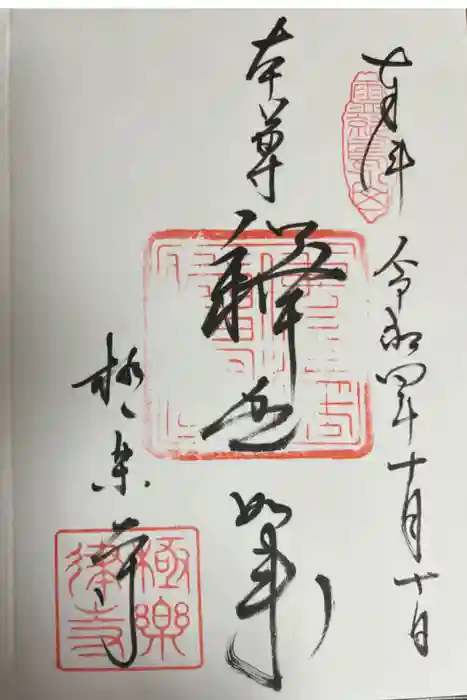 奉拝
令和四年十月十日
本尊
釋迦如来
極楽寺
極樂律寺